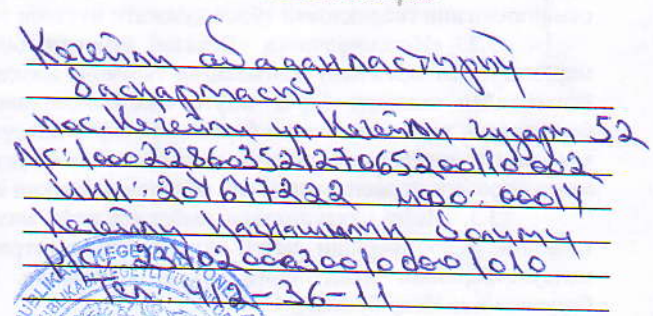 Кегейли абаданластырыў
басқармасы
пос. Кегейли ул. Кегейли гузары 52
л/с: 100022860352127065200110002
ИНН: 201647222 мфо: 00014
Кегейли Ғазнашылық бөлими
23402000300100001010
Тел: 412-36-11
KEGEYLI